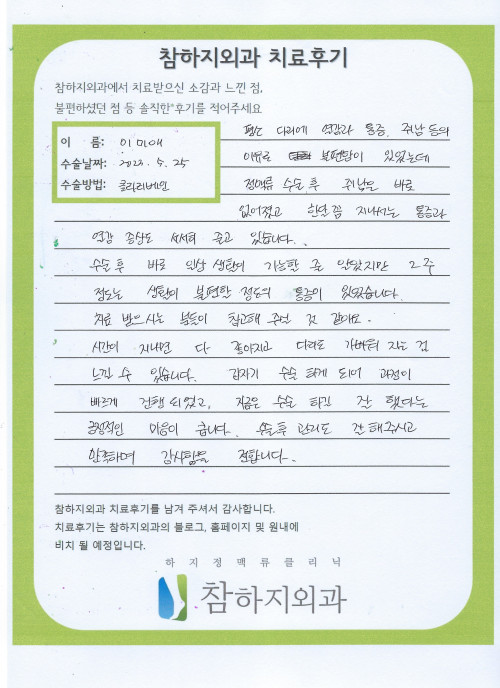 참하지외과 치료후기
참하지외과에서 치료받으신 소감과 느낀 점,
불편하셨던 점 등 솔직한 후기를 적어주세요
이 름: 이미애
수술날짜: 2023. 5. 25
수술방법: 클라리베인
평소 다리에 열감과 통증, 쥐남 등의
이유로 불편함이 있었는데
정맥류 수술 후 쥐남은 바로
없어졌고 한달쯤 지나서는 통증과
열감 증상도 서서히 줄고 있습니다.
수술 후 바로 일상 생활이 가능한 줄 알았지만 2주
정도는 생활이 불편한 정도의 통증이 있었습니다.
치료 받으시는 분들이 참고해 주면 것 같아요.
시간이 지나면 다 좋아지고 다리도 가벼워 지는 걸
느낄 수 있습니다. 갑자기 수술 하게 되어 과정이
빠르게 진행 되었고, 지금은 수술 하길 잘 했다는
긍정적인 마음이 듭니다. 수술 후 관리도 잘 해주시고
만족하며 감사함을 전합니다.
참하지외과 치료후기를 남겨 주셔서 감사합니다.
치료후기는 참하지외과의 블로그, 홈페이지 및 원내에
비치 될 예정입니다.
하지정맥류클리닉
참하지외과